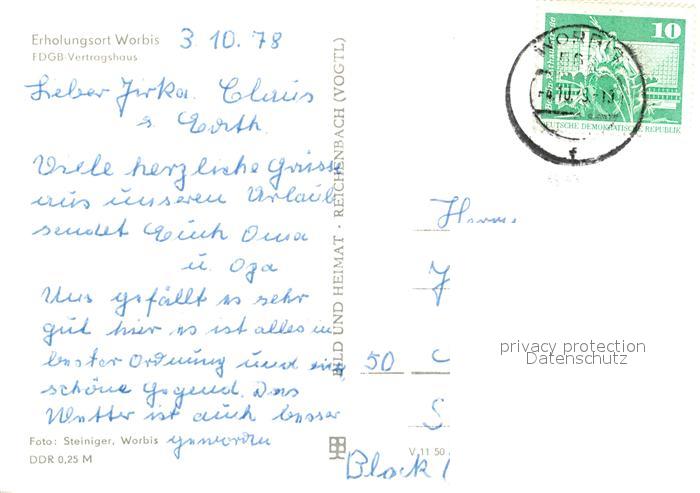 Erholungsort Worbis
FDGB-Vertragshaus
3 10. 78
Lieber Jirka. Claus
Viele herzliche Grüsse
aus unseren Urlaub
sendet Euch Oma
u. Opa
Uns gefällt es sehr
gut hier es ist alles in
bester Ordnung und eine
schöne Gegend. Das
Wetter ist auch besser
geworden
Foto: Steiniger, Worbis
DDR 0,25 M
BILD UND HEIMAT · REICHENBACH (VOGTL)
V 11 50
10
WORBIS
DEUTSCHE DEMOKRATISCHE REPUBLIK
f
Herrn
J
50 C
S
Block
privacy protection
Datenschutz